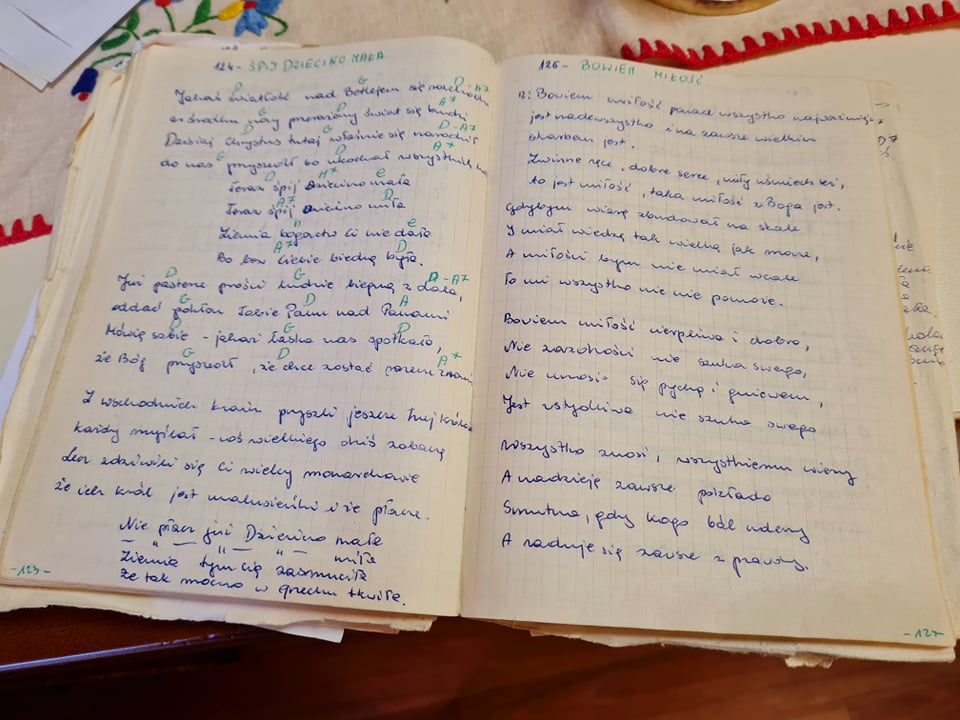 124 - ŚPIJ DZIECINO MAŁA
D G D - A7
Jakaś światłość nad Betlejem się rozchodzi
G D A7
w środku nocy przerażony świat się budzi
D G D - A7
Dzisiaj Chrystus tutaj właśnie się narodził
G D A7
do nas przyszedł bo ukochał wszystkich
D A7 e
Teraz śpij Dziecino mała
A7 D
Teraz śpij Dziecino miła
h e
Ziemia bogactw Ci nie dała
A7 D
Bo bez Ciebie biedną była.
D G D - A7
Już pasterze prości ludzie biegną z dala,
G D A
oddać pokłon Tobie Panu nad Panami
D G D
Mówią sobie - jakaś łaska nas spotkała,
G D A7
że Bóg przyszedł, że chce zostać razem z nami
Z wschodnich krain przyszli jeszcze trzej króle
każdy myślał - coś wielkiego dziś zobaczę
Lecz zdziwili się Ci wielcy monarchowie
że ich król jest malusieńki i że płacze.
Nie płacz już Dziecino mała
— " — " — " miła
Ziemia tym cię zasmuciła
Że tak mocno w grzechu tkwiła.
- 123 -
126 - BOWIEM MIŁOŚĆ
Bowiem miłość ponad wszystko
jest nadewszystko i na zawsze wielkim
skarbem jest.
Zwinne ręce, dobre serce, miły uśmiech też,
to jest miłość, taka miłość z Boga jest.
Gdybym wiarę zbudował na skale
I miał wiedzę tak wielką jak morze,
A miłości bym nie miał wcale
To mi wszystko nic nie pomoże.
Bowiem miłość cierpliwa i dobra,
Nie zazdrości nie szuka swego,
Nie unosi się pychą i gniewem,
Jest wstydliwa nie szuka swego
Wszystko znosi, wszystkiemu wierzy
A nadzieję zawsze pokłada
Smutna, gdy kogo ból uderzy
A raduje się zawsze z prawdy.
- 124 -